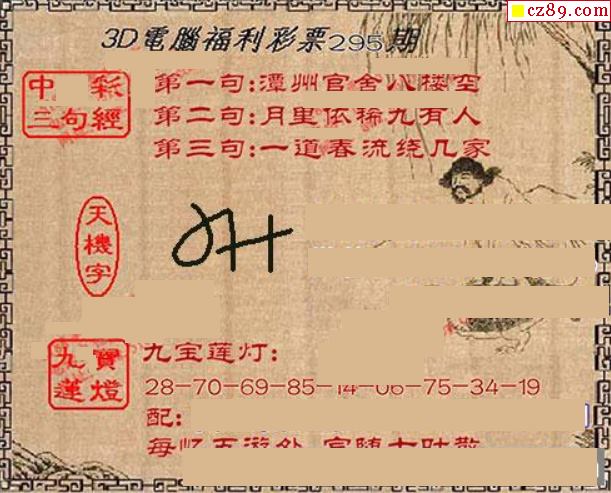 cz89.com
3D電腦福利彩票295期
中彩三句經
第一句:潭州官舍八楼空
第二句:月里依稀九有人
第三句:一道春流绕几家
天機字
九寶蓮燈
九宝莲灯:
28-70-69-85-14-06-75-34-19
配: